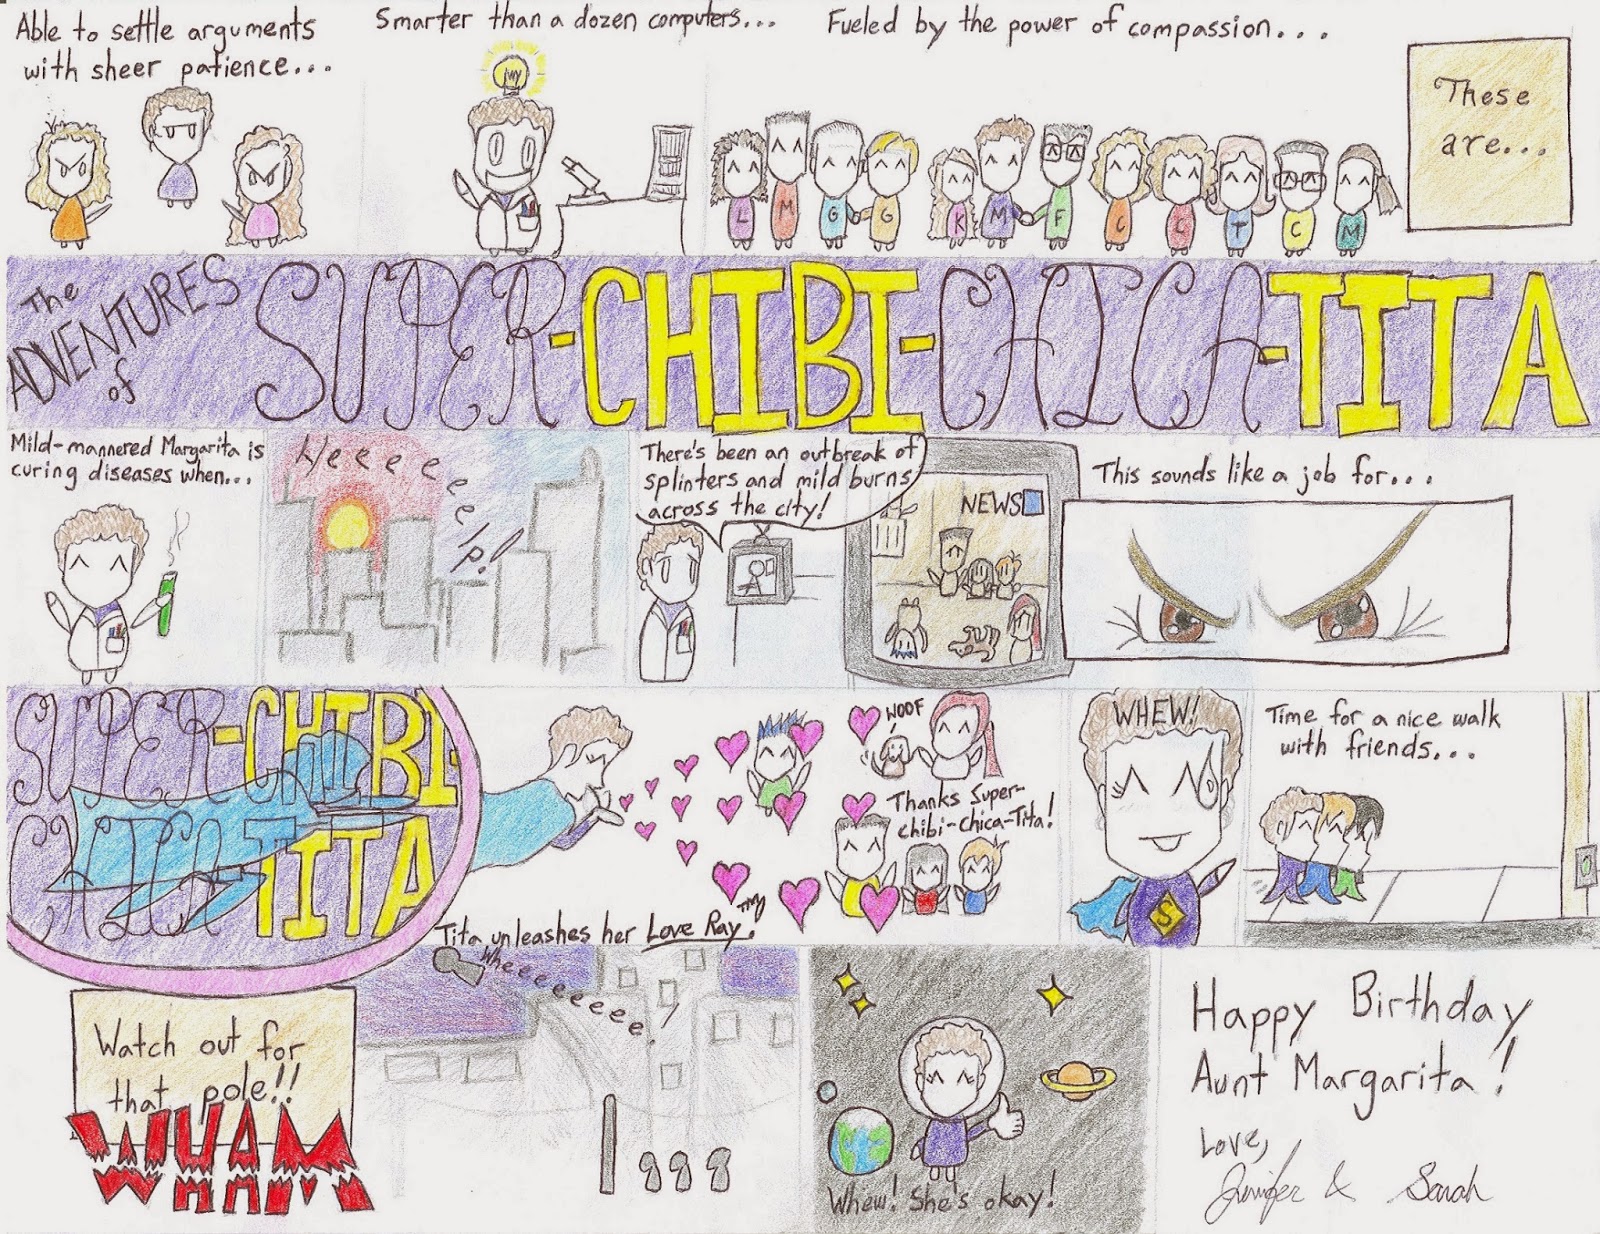 Able to settle arguments
with sheer patience...
Smarter than a dozen computers...
Fueled by the power of compassion...
These
are...
L M G G K M F C L T C M
The
ADVENTURES
of
SUPER-CHIBI-CHICA-TITA
Mild-mannered Margarita is
curing diseases when...
Heeeeeeelp!
There's been an outbreak of
splinters and mild burns
across the city!
NEWS
This sounds like a job for...
SUPER-CHIBI-
CHICA-TITA
Tita unleashes her Love Ray!™
WOOF
Thanks Super-
chibi-Chica-Tita!
WHEW!
S
Time for a nice walk
with friends...
Watch out for
that pole!!
WHAM
Wheeeeeeeee!
Whew! She's okay!
Happy Birthday
Aunt Margarita!
Love,
Jenifer & Sarah